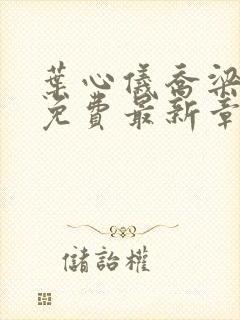 葉心儀喬梁
免費最新章
儲詒權